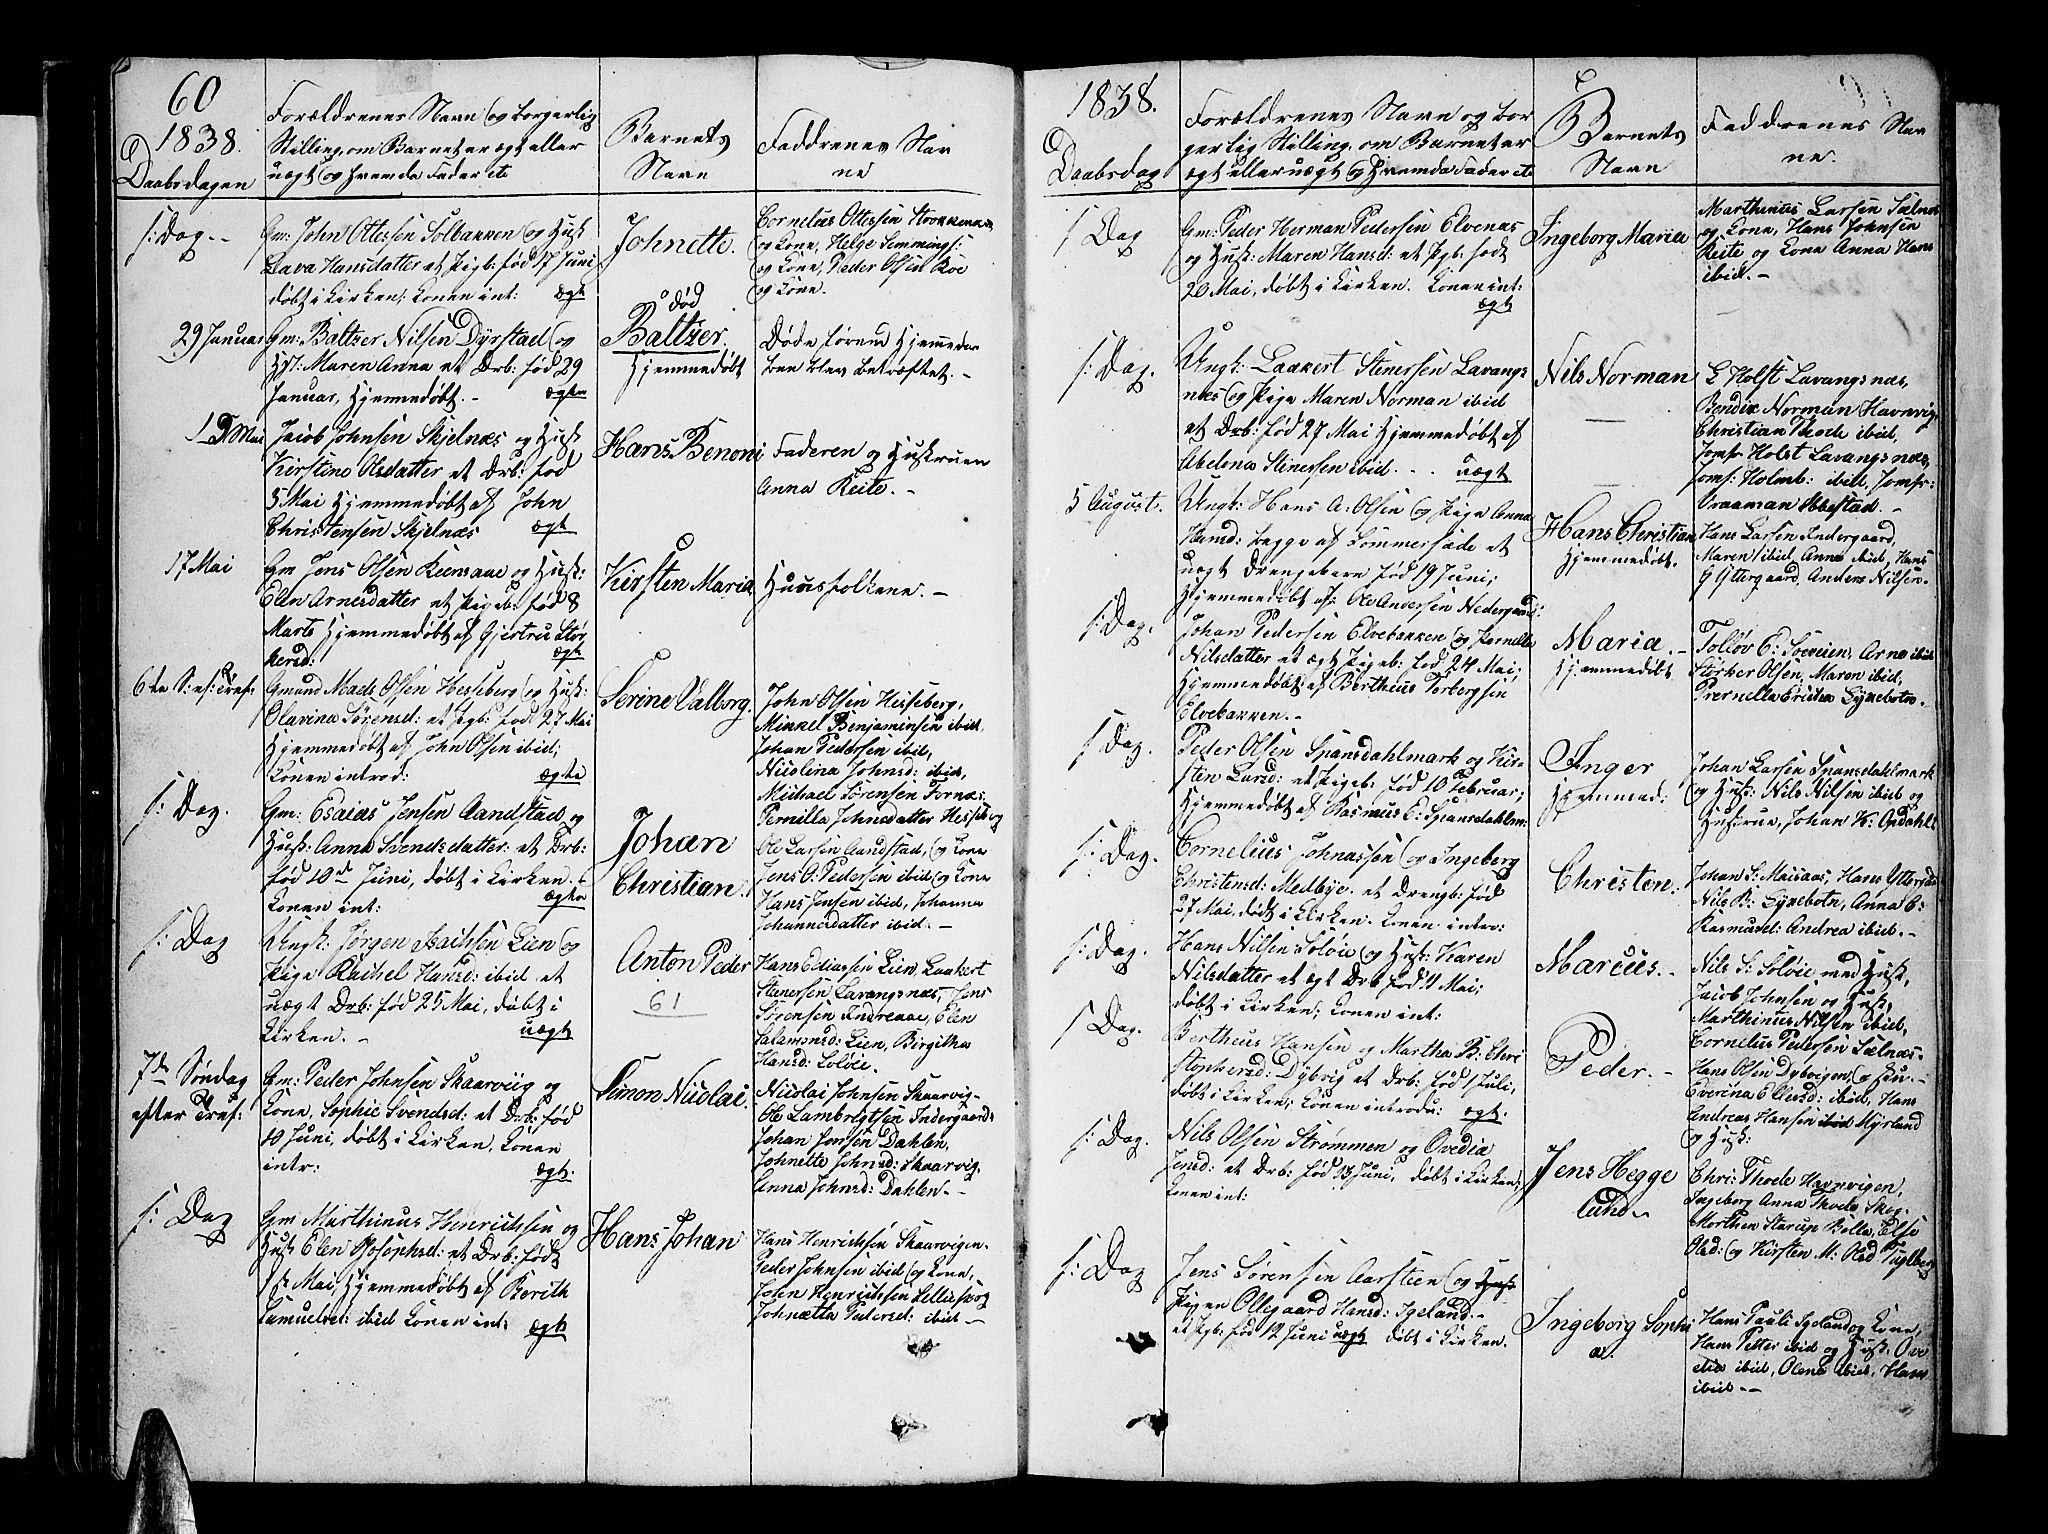 60
1838.
Daabsdagen
Forældrenes Navn og borgerlig
Stilling, om Barnet er ægt eller
uægt og hvemda Fader etc
Barnets
Navn
Faddrenes Nav
ne
s: Dag.
Gm: John Ottesen Solbakken og Husk
Lava Hansdatter et Pigb: fød 17 Juni
døbt i Kirken: Konen int: ægte
Johnette.
Cornelius Ottesen
og Kone, Helge Hemmings:
og Kone, Peder Olsen Roe
og Kone.
29 Januar
Gm: Baltzer Nilsen Dyrstad og
Hst: Maren Anna et Drb: fød 29
Januar, Hjemmedøbt. - ægte
død
Baltzer.
Hjemmedøbt
Døde førend Hjemmeda
ben blev betræftet. -
19 Mai
Jacob Johnsen Skjelnæs og Husk
Kirstine Olsdatter et Drb: fød
5 Mai Hjemmedøbt af John
Christensen Skjelnæs ægt
Hans Benoni
Faderen og Huskruen
Anna Reite. -
17 Mai
Gm Jens Olsen Reensaae og Husk:
Elen Arnesdatter et Pigeb: fød 8
Marts Hjemmedøbt af Gjertru Stør
kersd: ægte
Kirsten Maria
Huusfolkene. -
6te S: ef: Tref:
Gmand Mads Olsen Hesseberg og Husk:
Olavina Sørensd: et Pgb: fød 27 Mai
Hjemmedøbt af John Olsen ibid;
Konen introd: ægte
Serine Valborg.
John Olsen Hesseberg,
Mikkel Benjaminsen ibid,
Johan Pedersen ibid,
Nicolina Johnsd: ibid,
Michael Sørensen Fornæs
Pernilla Johnsdatter Hesseberg
s: Dag.
Gm: Esaias Jensen Aandstad og
Husk: Anna Svendsdatter: et Drb:
fød 10de Juni, døbt i Kirken.
Konen int: ægte
Johan
Christian.
Ole Larsen Aandstad, og Kone
Jens O: Pedersen ibid og Kone
Hans Jensen ibid, Johanna
Johannesdatter ibid. -
s: Dag
Ungk: Jørgen Isachsen Lien og
Pige Rachel Hansd: ibid et
uægt Drb: fød 25 Mai, døbt i
Kirken. - uægt
Anton Peder
61
Hans Ediassen Lien, Laakert
Stenersen Lavangsnæs, Jens
Sørensen Indreaae, Elen
Salamonsd: Lien, Birgitha
Hansd: Soløie.
7de Søndag
efter Tref:
Gm: Peder Johnsen Skaarviig og
Kone, Sophie Svendsd: et Drb: fød
10 Juni, døbt i Kirken, Konen
intr: ægt.
Simon Nicolai.
Nicolai Johnsen Skaarvig-
Ole Lambrigtsen Indergaard:
Johan Jonsen Dahlen,
Johnette Johnsd: Skaarvig,
Anna Johnsd: Dahlen. -
s: Dag
Gm Marthinus Henrichsen og
Husk Elen Josephsd: et Drb: født
1ste Mai, Hjemmedøbt af Berith
Samuelsd: ibid Konen int: ægt
Hans Johan
Hans Henrichsen Skaarvigen.
Peder Johnsen ibid og Kone,
John Henrichsen Lilleskog
Johnetta Pedersd: ibid -
1838.
Daabsdag
Forældrenes Navn og bor
gerlig Stilling, om Barnet er
ægt eller uægt og Hvemda Fader etc
Barnets
Navn
Faddrenes Nav
ne.
s Dag
Gm: Peder Herman Pedersen Elvenæs
og Husk: Maren Hansd: et Pgb: født
20 Mai, døbt i Kirken. Konen int:
ægt
Ingeborg Maria
Marthinus Larsen Salnes
og Kone, Hans Johnsen
Reite og Kone Anna Hans
ibid. -
s: Dag.
Ungk: Laakert Stenersen Lavangs
næs og Pige Maren Norman ibid
et Drb: fød 27 Mai Hjemmedøbt af
Abelone Stenersen ibid. - . uægt
Nils Norman
E Holst Lavangsnæs,
Bendix Norman Havnvig,
Christian Thode ibid,
Jomfr Holst Lavangsnæs,
Jomf: Holmb: ibid, Jomfr:
Vraaman Ibbestad. -
5 August.
Ungk: Hans A: Olsen og Pige Anna
Hansd: begge af Sommersæde et
uægt Drengebarn fød 19 Juni;
Hjemmedøbt af: Ole Andersen Nedergaard:
Hans Christian
Hjemmedøbt.
Hans Larsen Indergaard,
Maren ibid, Anna ibid, Hans
G Yttergaard, Anders Nilsen.
s: Dag.
Johan Pedersen Elvebakken og Pernella
Nilsdatter et ægt Pigeb: fød 24 Mai;
Hjemmedøbt af Bertheus Torbergsen
Elvebakken. -
Maria. -
Hjemmedøbt
Tolløv E: Soeveien, Arne ibid
Størker Olsen, Maren ibid,
Pernella Ericha Gynebotn. -
s Dag.
Peder Olsen Spansdahlmark og Kir
sten Larsd: et Pigeb: fød 10 Februar;
Hjemmedøbt af Rasmus E: Spansdahlm:
Inger
Hjemmed:
Johan Larsen Spansdahlmark
og Husk: Nils Nilsen ibid og
Huskrue, Johan K: Opdahl:
s: Dag.
Cornelius Johnassen og Ingeberg
Christensd: Medbye. et Drengb: fød
27 Mai, døbt i Kirken. Konen inter:
Christen.
Johan S: Maisaae, Hans Yttergd:
Nils B: Gynebotn, Anna C:
Rasmusd: Andrea ibid. -
s: Dag.
Hans Nilsen Soløie og Husk: Karen
Nilsdatter et ægt Drb fød 4 Mai;
døbt i Kirken; Konen int:
Marcus. -
Nils S: Soløie med Husk,
Jacob Johnsen og Husk,
Marthinus Nilsen ibid,
Cornelius Pedersen Salnæs-
s Dag.
Bertheus Hansen og Martha B: Chri
stophersd: Dybvig et Drb: fød 1 Juli,
døbt i Kirken; Konen introdu: ægt.
Peder. -
Hans Olsen Dybvigen, og Hu. -
Everina Ellend: ibid, Hans
Andreas Hansen ibid Myrland
og Husk:
s: Dag.
Nils Olsen Strømmen og Ovedia
Jensd: et Drb: fød 13 Juni, døbt i Kirken;
Konen int:
Jens Hegge
lund -
Chri: Thode Havnvigen,
Ingeborg Anna Thode, Skog.
Morthen Starup Bolla, Else
Olsd: og Kirsten M: Olsd Fuglberg
s: Dag
Jens Sørensen Aarstien og Husk
Pigen Ollegaard Hansd: Igeland. -
et Pgb: fød 12 Juni uægt døbt i Kirken.
Ingeborg Sophi
a.
Hans Pauli Igeland og Kone,
Hans Petter ibid og Husk, Ove
dia ibid, Olena ibid, Hans
ibid. -